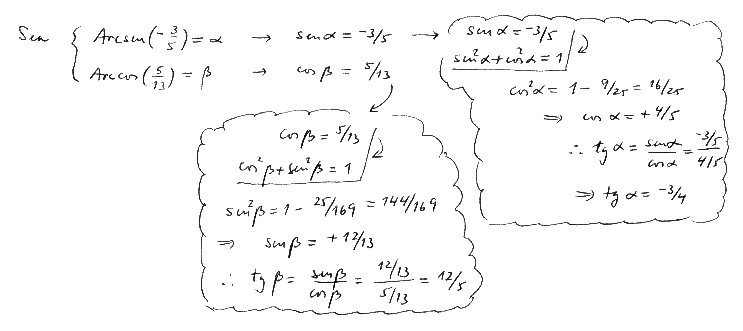 Sea { Arcsen(-3/5) = α → sen α = -3/5 →
Arccos(5/13) = β → cos β = 5/13
sen α = -3/5
sen²α + cos²α = 1
cos²α = 1 - 9/25 = 16/25
⇒ cos α = +4/5
∴ tg α = senα/cosα = -3/5 / 4/5
⇒ tg α = -3/4
cos β = 5/13
cos²β + sen²β = 1
sen²β = 1 - 25/169 = 144/169
⇒ sen β = +12/13
∴ tg β = senβ/cosβ = 12/13 / 5/13 = 12/5